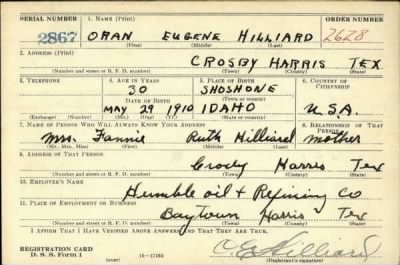 SERIAL NUMBER 1. NAME (Print) ORDER NUMBER
2867 ORAN EUGENE HILLIARD 2628
(First) (Middle) (Last)
2. ADDRESS (Print)
CROSBY HARRIS TEX
(Number and street or R. F. D. number) (Town) (County) (State)
3. TELEPHONE 4. AGE IN YEARS 5. PLACE OF BIRTH 6. COUNTRY OF CITIZENSHIP
30 SHOSHONE
DATE OF BIRTH
MAY 29 1910 IDAHO U.S.A.
(Exchange) (Number) (Mo.) (Day) (Yr.) (State or country)
7. NAME OF PERSON WHO WILL ALWAYS KNOW YOUR ADDRESS 8. RELATIONSHIP OF THAT PERSON
Mrs. Fannie Ruth Hilliard Mother
(Mr., Mrs., Miss) (First) (Middle) (Last)
9. ADDRESS OF THAT PERSON
Crosby Harris Tex
(Number and street or R. F. D. number) (Town) (County) (State)
10. EMPLOYER'S NAME
Humble oil & Refining Co
11. PLACE OF EMPLOYMENT OR BUSINESS
Baytown Harris Tex
(Number and street or R. F. D. number) (Town) (County) (State)
I AFFIRM THAT I HAVE VERIFIED ABOVE ANSWERS AND THAT THEY ARE TRUE.
REGISTRATION CARD
D. S. S. Form 1 16-17105 O E Hilliard
(Registrant's signature)